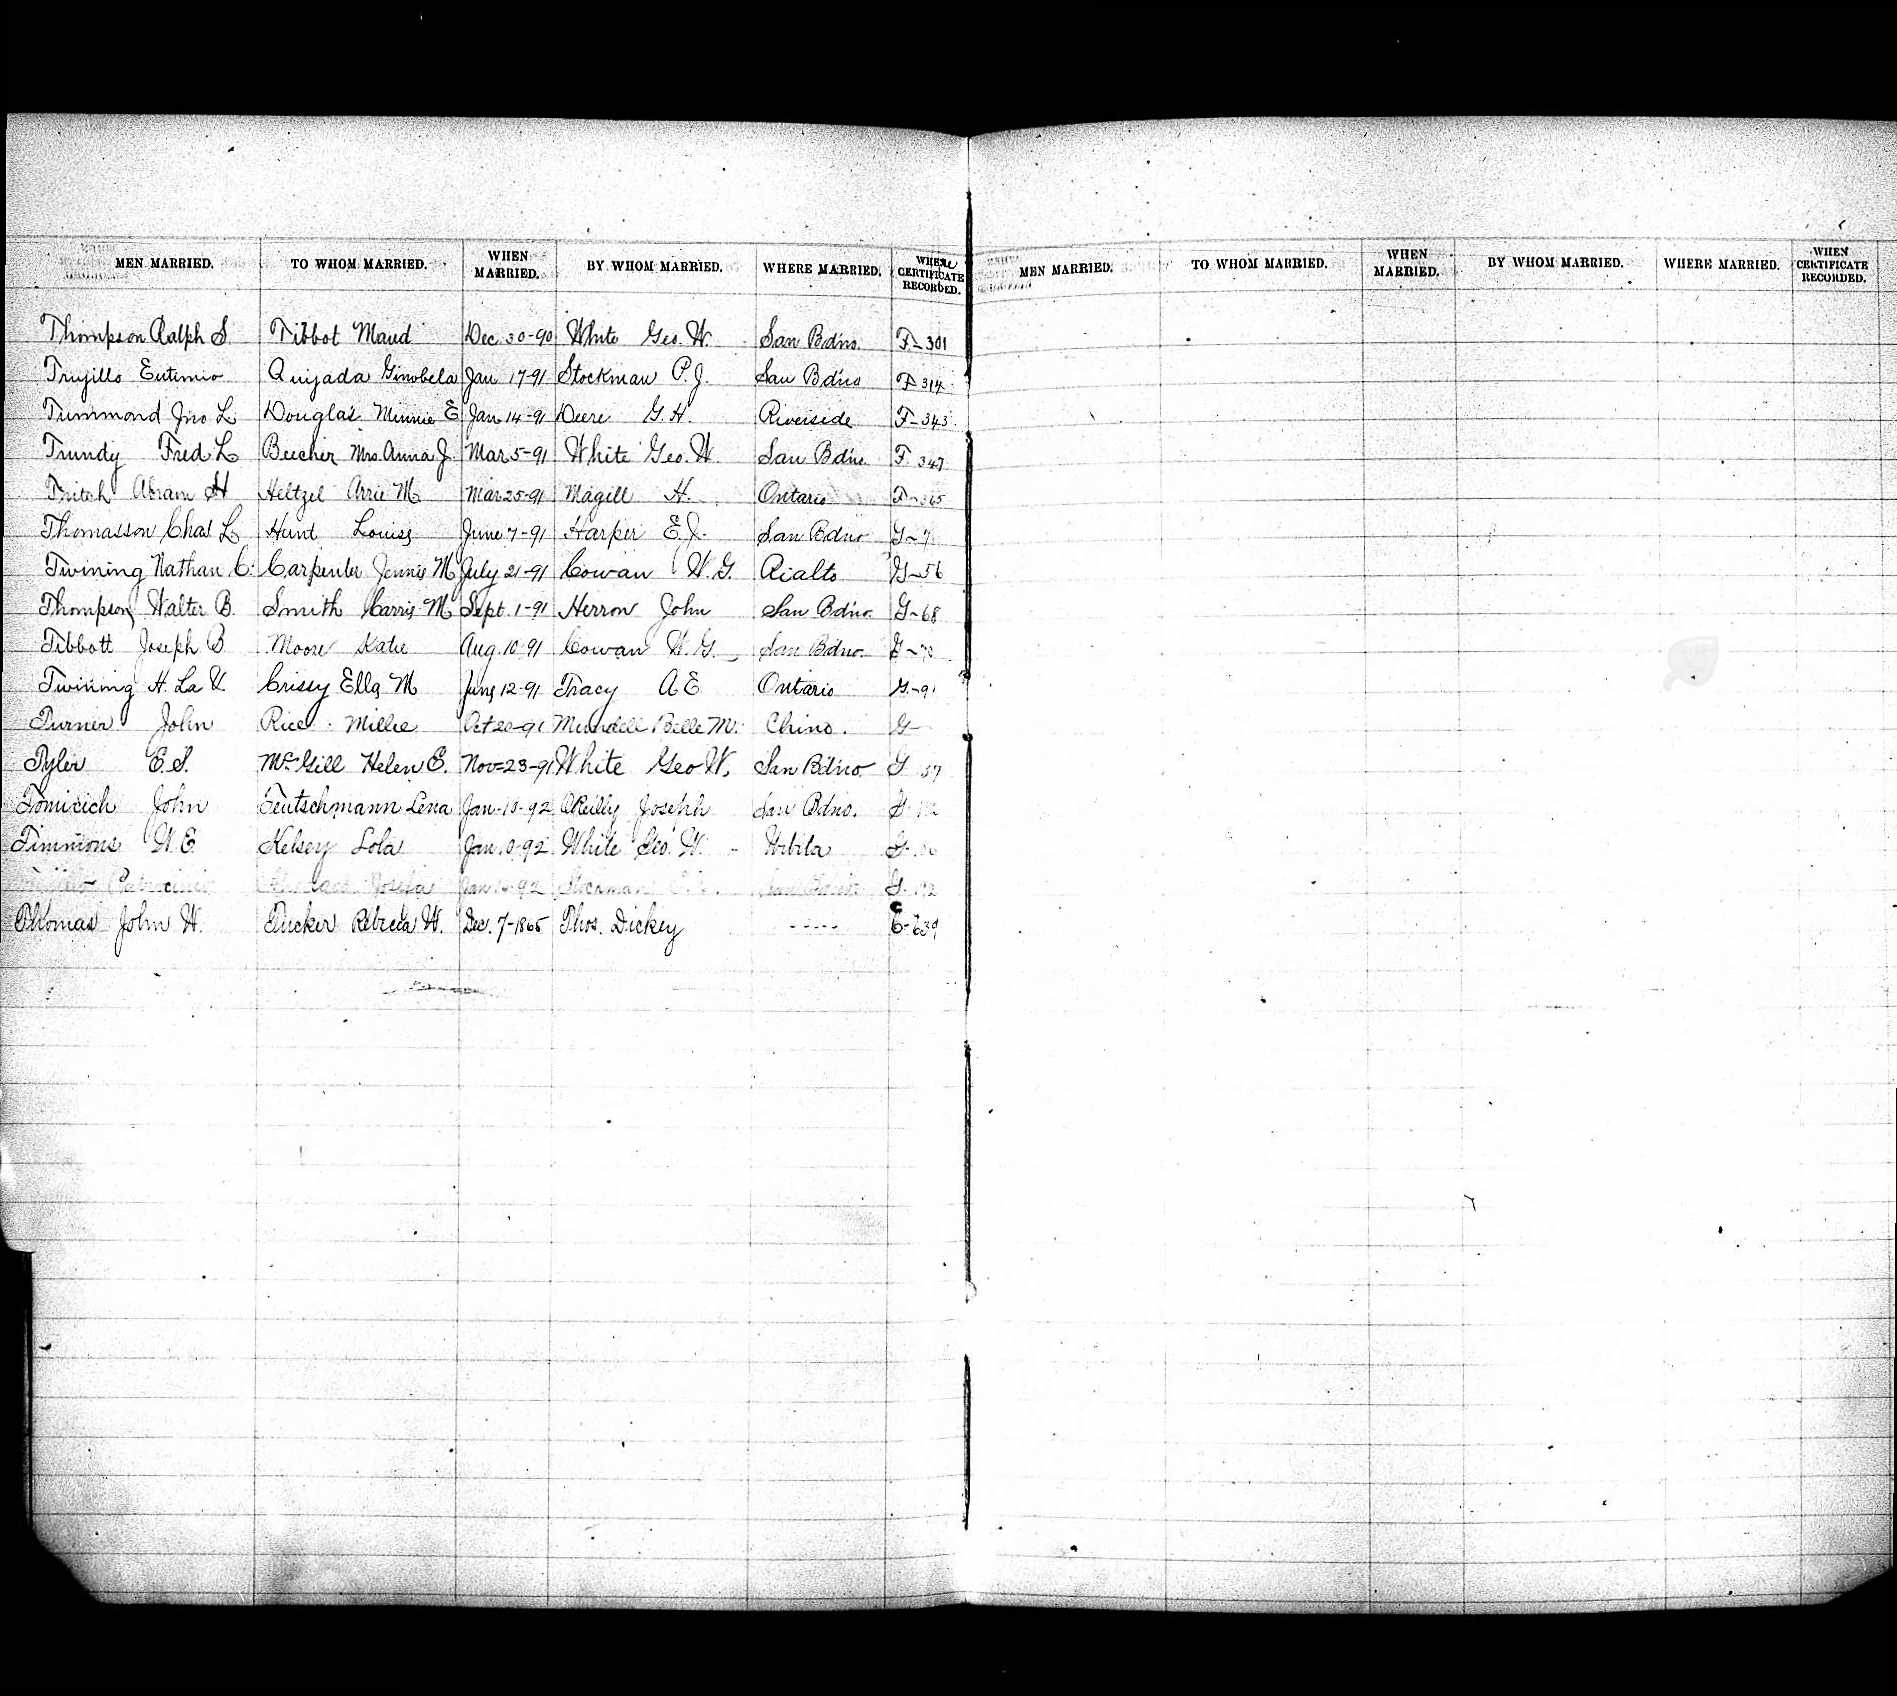 MEN MARRIED. TO WHOM MARRIED. WHEN MARRIED. BY WHOM MARRIED. WHERE MARRIED. WHERE CERTIFICATE RECORDED.
Thompson Ralph S. Tibbot Maud Dec. 30-90 White Geo. W. San Bdno. F-301
Trujillo Eutimio Quijada Ginobela Jan 17-91 Stockman P. J. San Bdno F-314
Tummond Jno L Douglas Minnie E Jan 14-91 Deere G. H. Riverside F-343
Trundy Fred L Beecher Mrs. Anna J. Mar 5-91 White Geo. W. San Bdno F 347
Tritch Abram H Heltzel Arrie M Mar 25-91 Magill H. Ontario F-365
Thomasson Chas L Hunt Louisa June 7-91 Harper E. J. San Bdno G-7
Twining Nathan C. Carpenter Jennie M July 21-91 Cowan W. G. Rialto G-56
Thompson Walter B. Smith Carrie M Sept. 1-91 Herron John San Bdno. G-68
Tibbott Joseph B Moore Katie Aug. 10-91 Cowan W. G. San Bdno. G-
Twining H. La V. Crissy Ella M 12-91 Tracy A E Ontario G-91
Turner John Rice Millie Oct 20-91 Mundell Belle M. Chino. G-
Tyler E. S. McGill Helen E. Nov-23-91 White Geo W. San Bdno G 57
Tomicich John Teutschmann Lena Jan-10-92 O'Reilly Joseph San Bdno. G-
Timmons W. E. Kelsey Lola Jan. 92 White Geo. W. G-
Patrocinio Josefa Jan 92 Stockman San Bdno G. 192
Thomas John W. Tucker Rebecca W. Dec. 7-1865 Thos. Dickey ----- C-639
MEN MARRIED. TO WHOM MARRIED. WHEN MARRIED. BY WHOM MARRIED. WHERE MARRIED. WHEN CERTIFICATE RECORDED.